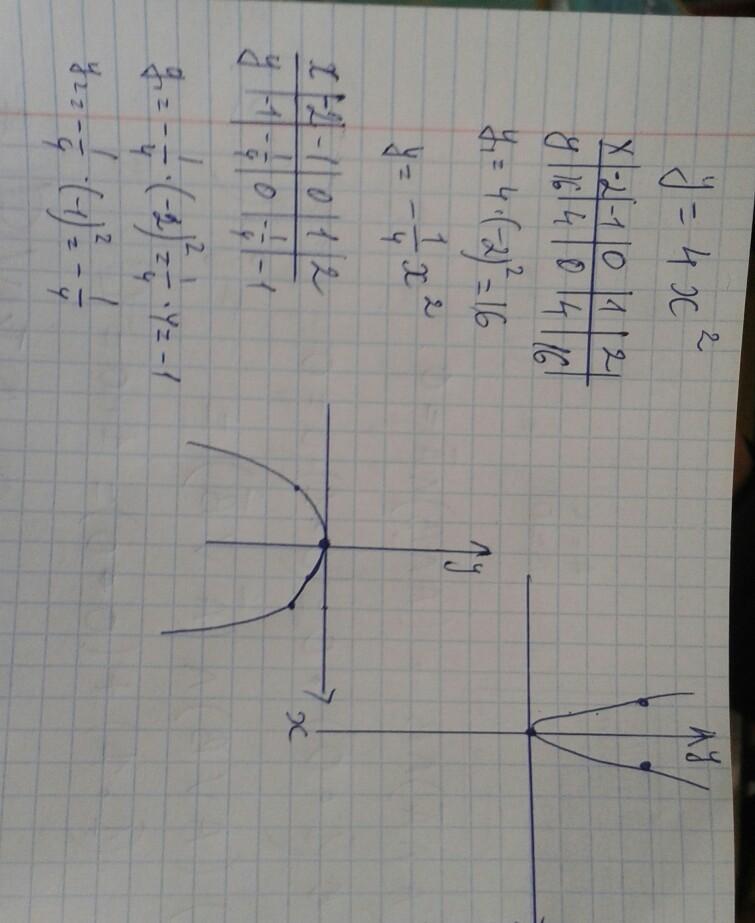 y = 4x²
x | -2 | -1 | 0 | 1 | 2
y | 16 | 4 | 0 | 4 | 16
y₁ = 4·(-2)² = 16
y = -1/4 x²
x | -2 | -1 | 0 | 1 | 2
y | -1 | -1/4 | 0 | -1/4 | -1
y₁ = -1/4·(-2)² = 1/4·4 = -1
y₂ = -1/4·(-1)² = -1/4
y
y
x